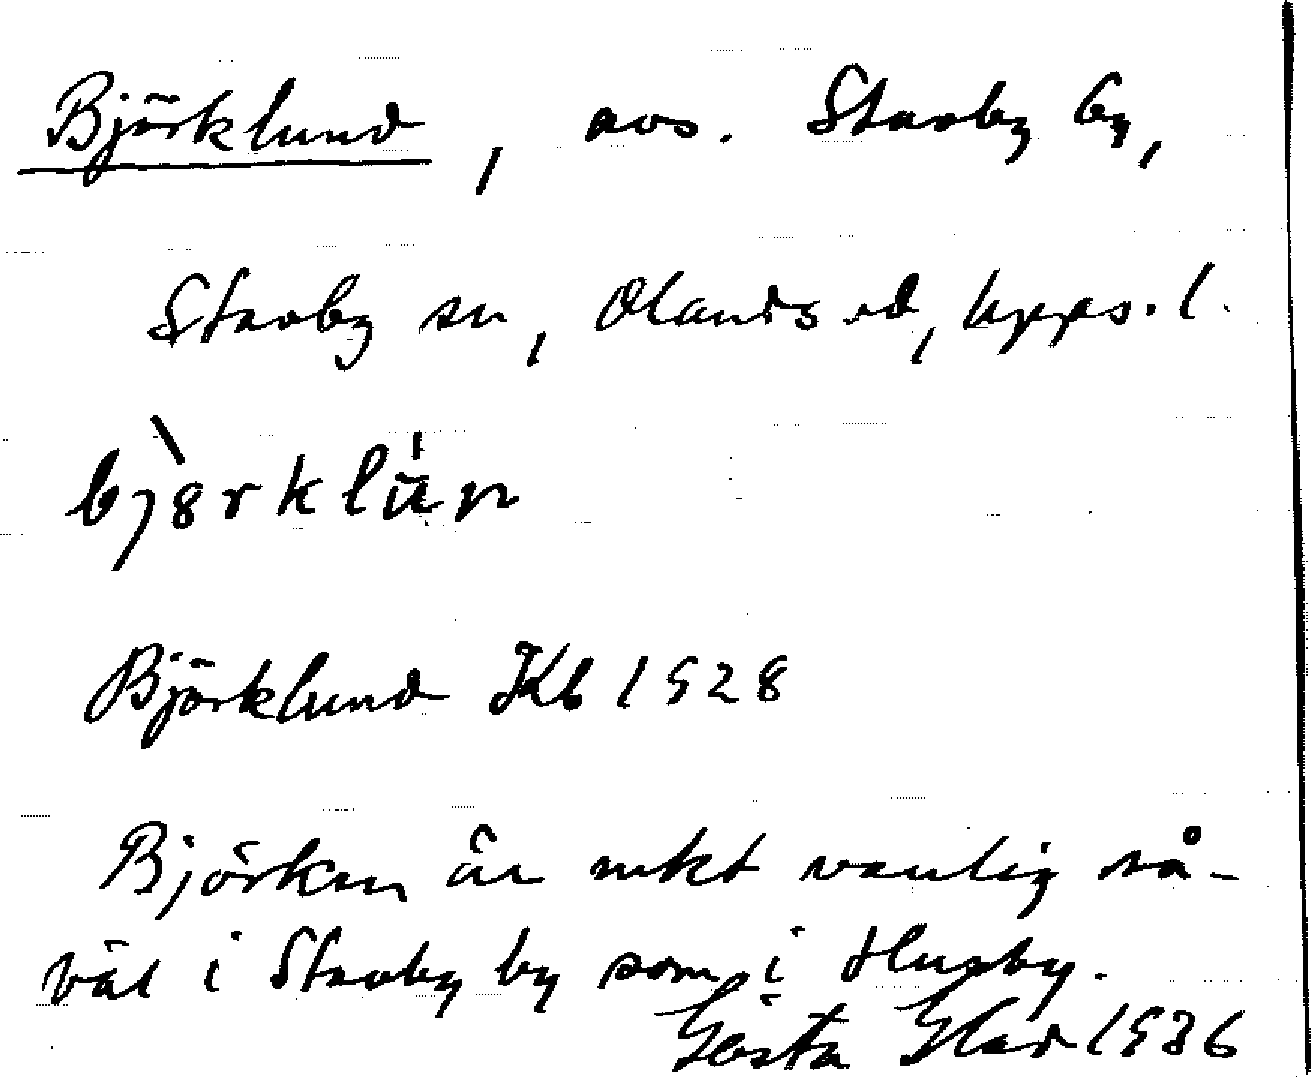 Björklund, avs. Stavby by,
Stavby sn, Olands hd, Upps. l.
björklun
Björklund Kb 1928
Björken är mkt vanlig så-
väl i Stavby by som i Husby.
Gösta Glad 1936